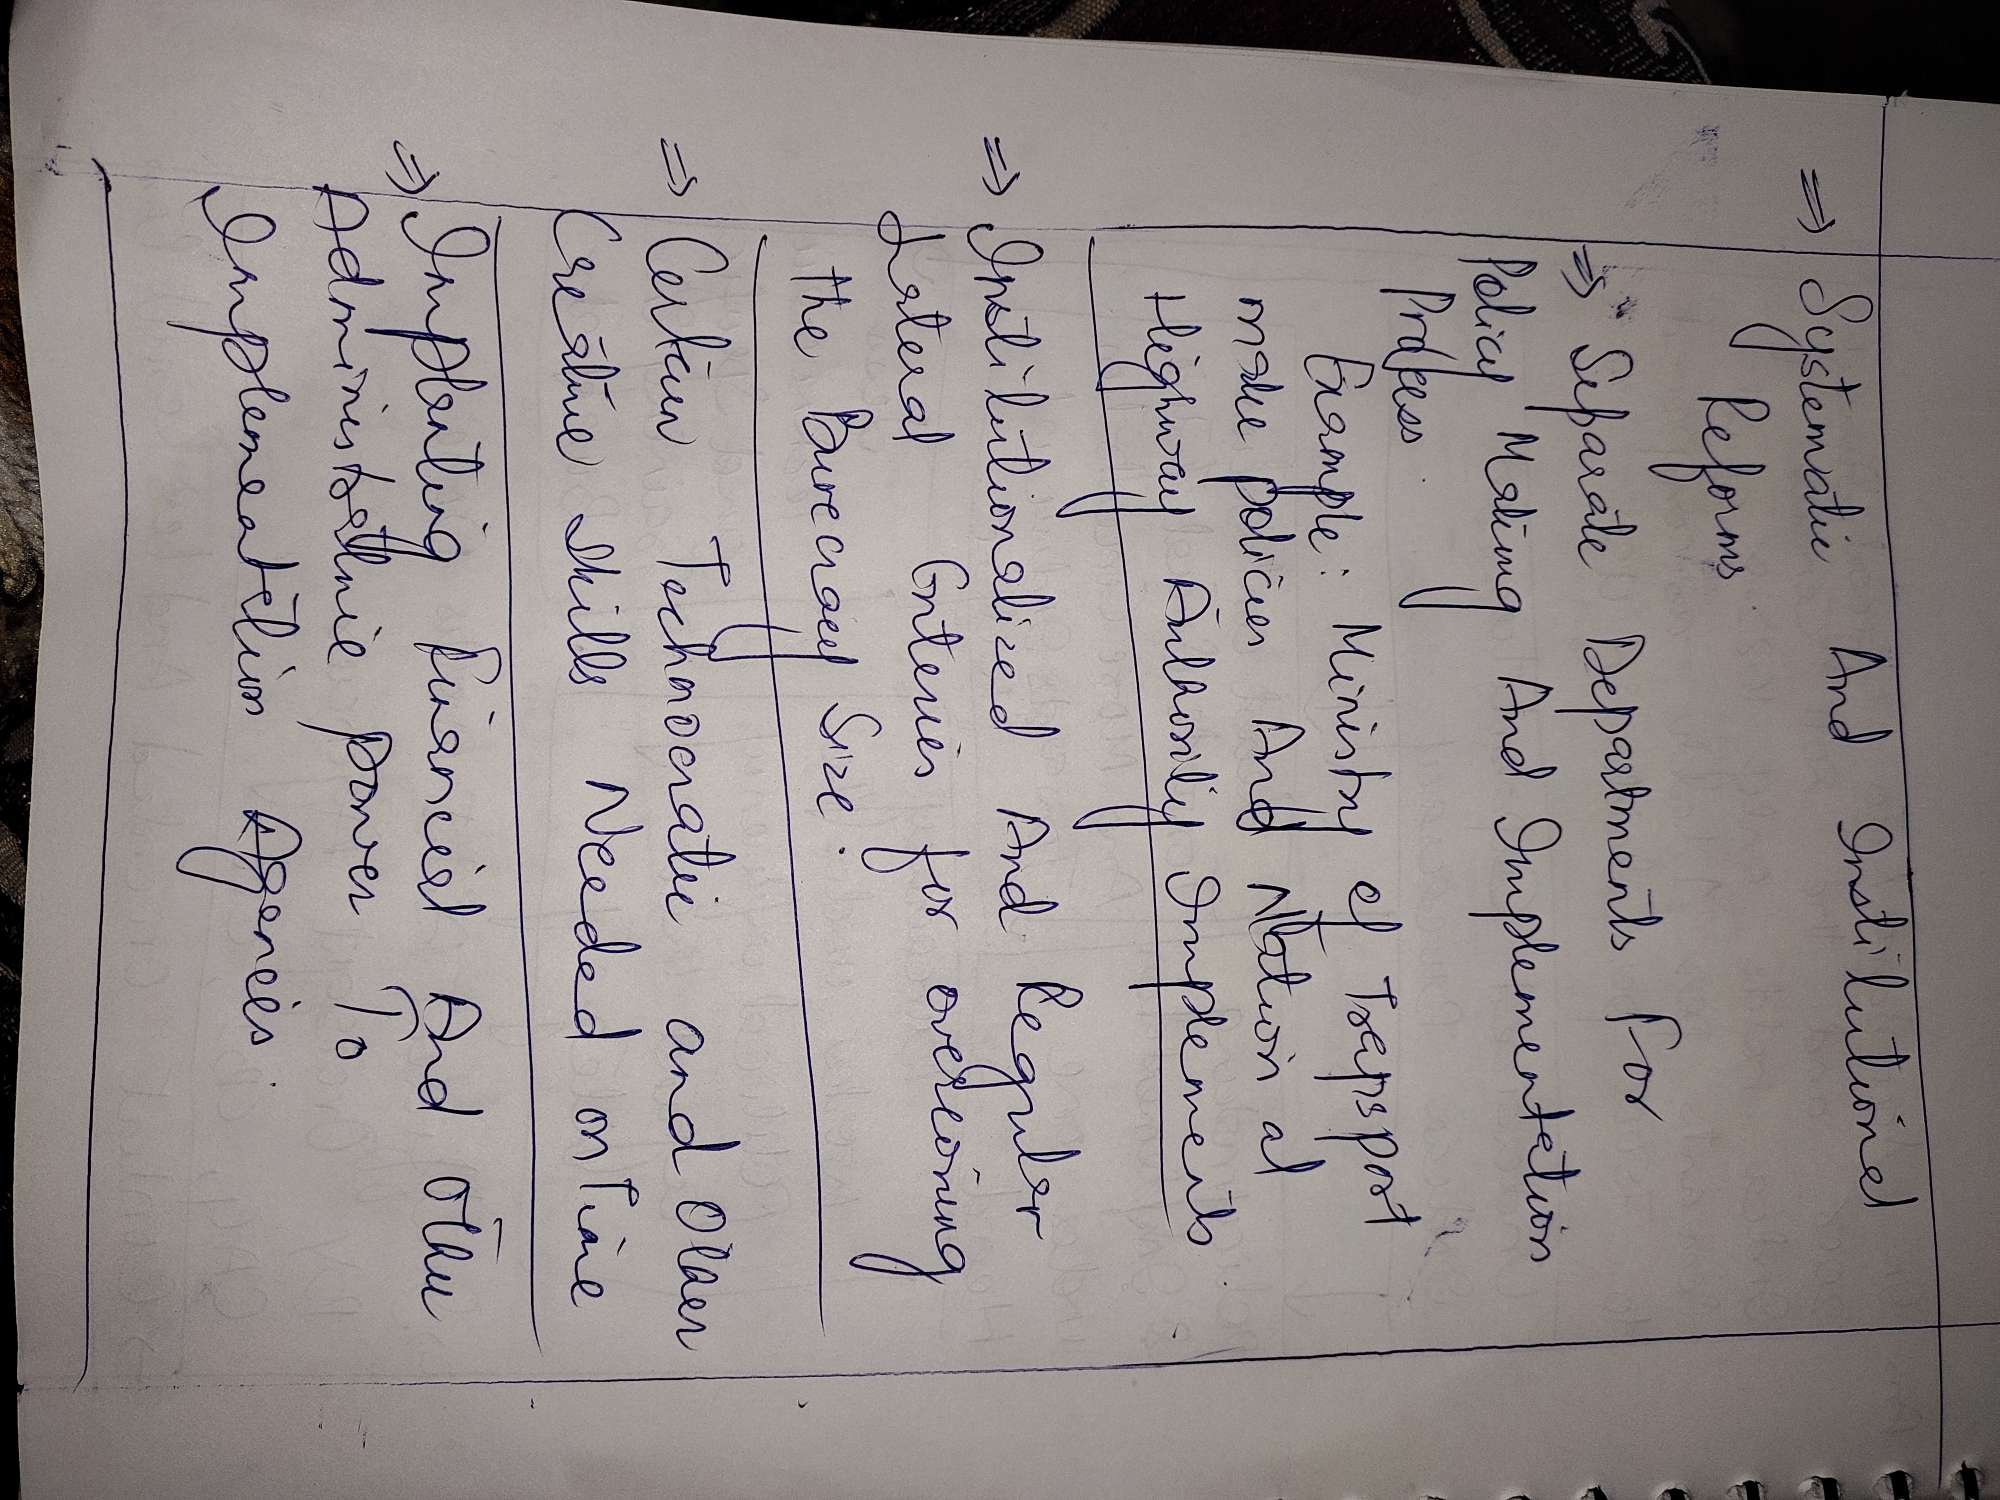 ⇒ Systematic And Institutional
Reforms
⇒ Separate Departments For
Policy Making And Implementation
Process.
Example: Ministry of Transport
make policies And National
Highway Authority Implements.
⇒ Institutionalized And Regular
Lateral Enteries for overcoming
the Burecracy Size.
⇒ Certain Technocratic and Other
Creative Skills Needed on Time
⇒ Implanting Financial And other
Administrative power To
Implementation Agencies.